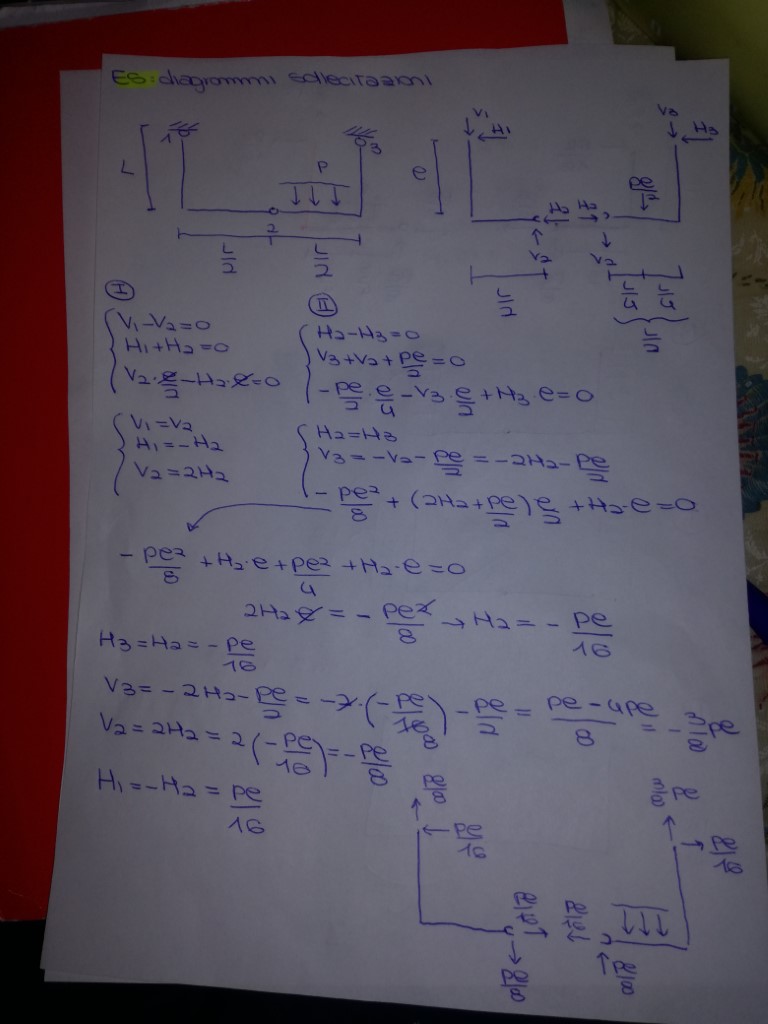 ES: diagrammi sollecitazioni
1 3 L P 2 L/2 L/2
V1 H1 e H2 H2 V2 V2 pe/2 V3 H3 L/2 L/4 L/4 L/2
I II
V1-V2=0
H1+H2=0
V2·e/2-H2·e=0
H2-H3=0
V3+V2+pe/2=0
-pe/2·e/4-V3·e/2+H3·e=0
V1=V2
H1=-H2
V2=2H2
H2=H3
V3=-V2-pe/2=-2H2-pe/2
-pe²/8+(2H2+pe/2)e/2+H2·e=0
-pe²/8+H2·e+pe²/4+H2·e=0
2H2e=-pe²/8→H2=-pe/16
H3=H2=-pe/16
V3=-2H2-pe/2=-2·(-pe/16)-pe/2=pe-4pe/8=-3/8pe
8
V2=2H2=2(-pe/16)=-pe/8
H1=-H2=pe/16
pe/8 pe/16 pe/16 pe/8
3/8pe pe/16 pe/16 pe/8